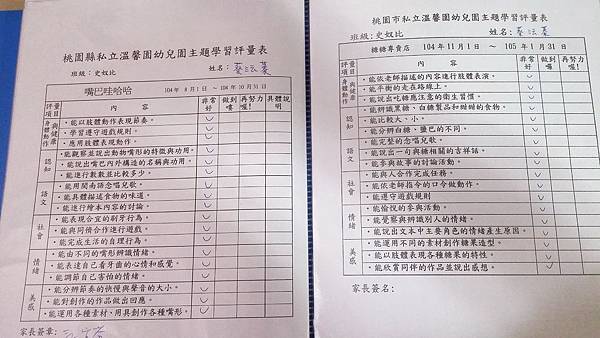 桃園縣私立溫馨園幼兒園主題學習評量表
班級：史奴比 姓名：
嘴巴哇哈哈 104年8月1日～104年10月31日
評量項目 內容 非常好 做到嘍 再努力喔! 具體說明
身體動作與健康
・能以肢體動作表現節奏。
・學習遵守遊戲規則。
・應用肢體表現動作。
認知
・能觀察並說出動物嘴形的特徵與功用。
・能說出嘴巴內外構造的名稱與功用。
・能進行數數並比較多少。
語文
・能用閩南語念唱兒歌。
・能具體描述食物的味道。
・能進行繪本內容的討論。
社會
・能表現合宜的刷牙行為。
・能與同儕合作進行遊戲。
・能完成生活的自理行為。
情緒
・能由不同的嘴形辨識情緒。
・能表達自己看牙齒的心情和感覺。
・能調節自己害怕的情緒。
美感
・能分辨節奏的快慢與聲音的大小。
・能對創作的作品做出回應。
・能運用各種素材、用具創作各種嘴形。
家長簽章：
桃園市私立溫馨園幼兒園主題學習評量表
班級：史奴比 姓名：
糖糖專賣店 104年11月1日～105年1月31日
評量項目 內容 非常好 做到嘍 再努力喔!
身體動作與健康
・能依老師描述的內容進行肢體表演。
・能平衡的走在路線上。
・能說出吃糖應注意的衛生習慣。
認知
・能辨識黑糖、白糖製品和甜甜的食物。
・能比較大、小。
・能分辨白糖、鹽巴的不同。
語文
・能完整的念唱兒歌。
・能說出一句與糖相關的吉祥話。
・能參與故事的討論活動。
社會
・能與人合作完成任務。
・能依老師指令的口令做動作。
・能遵守遊戲規則
情緒
・能愉悅的參與活動。
・能覺察與辨識別人的情緒。
・能說出文本中主要角色的情緒產生原因。
美感
・能運用不同的素材創作糖果造型。
・能以肢體表現各種糖果的特性。
・能欣賞同伴的作品並說出感想。
家長簽名：